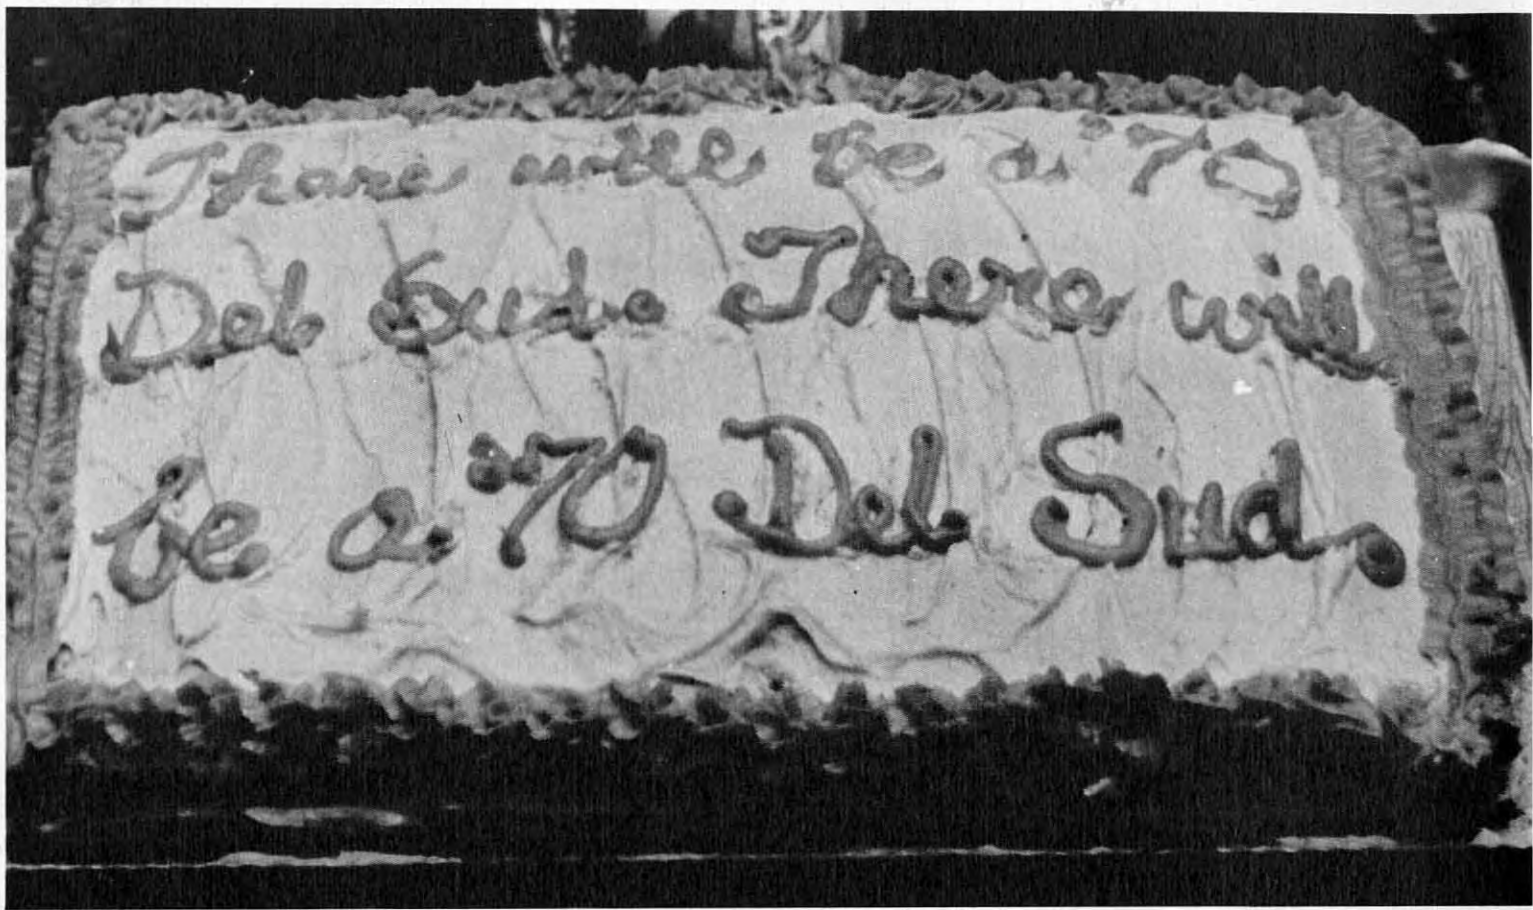 There will be a "70
Del Sud. There will
be a "70 Del Sud.